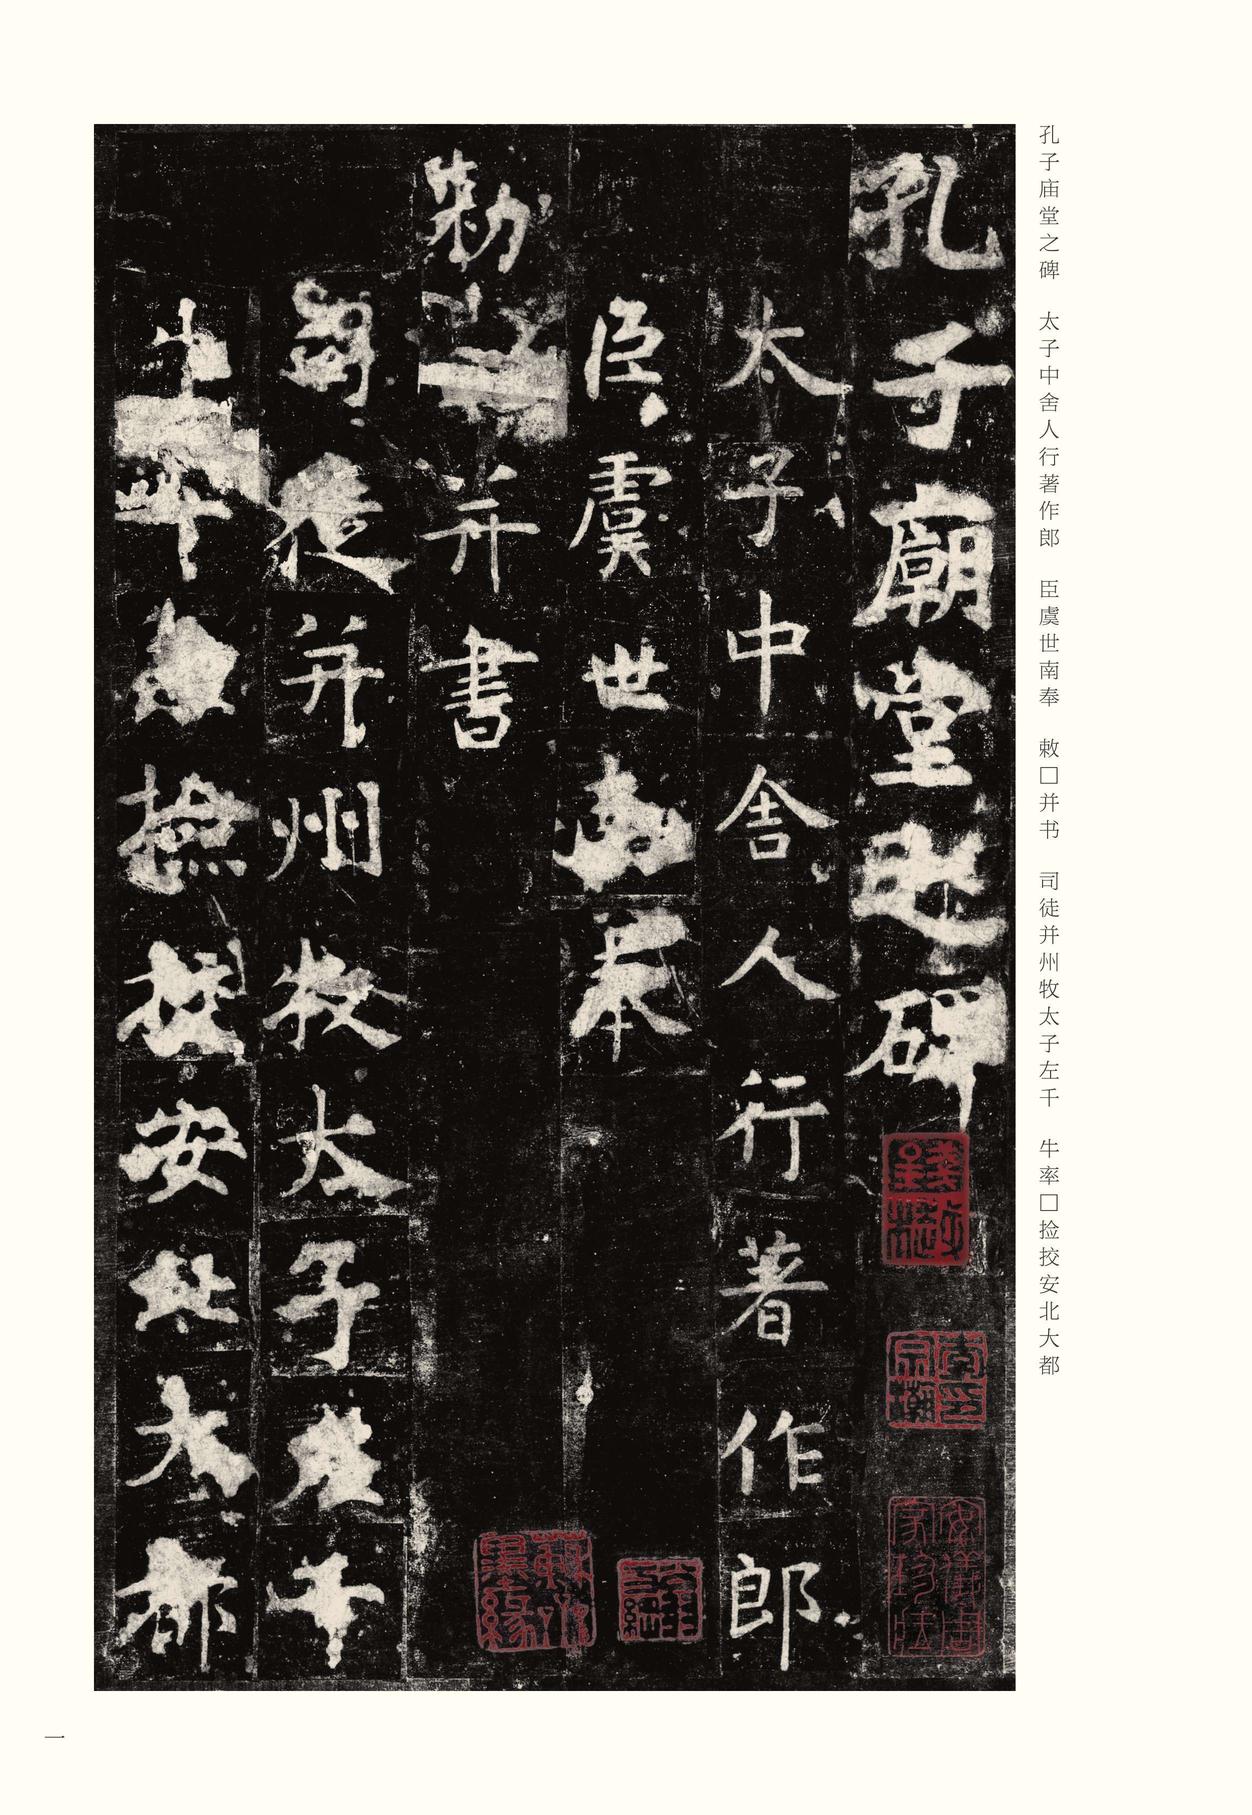 孔子廟堂之碑
太子中舍人行著作郎
臣虞世南奉
勑并書
司徒并州牧太子左千
牛率捡挍安北大都
孔子庙堂之碑　太子中舍人行著作郎　臣虞世南奉　敕□并书　司徒并州牧太子左千　牛率□捡挍安北大都
一